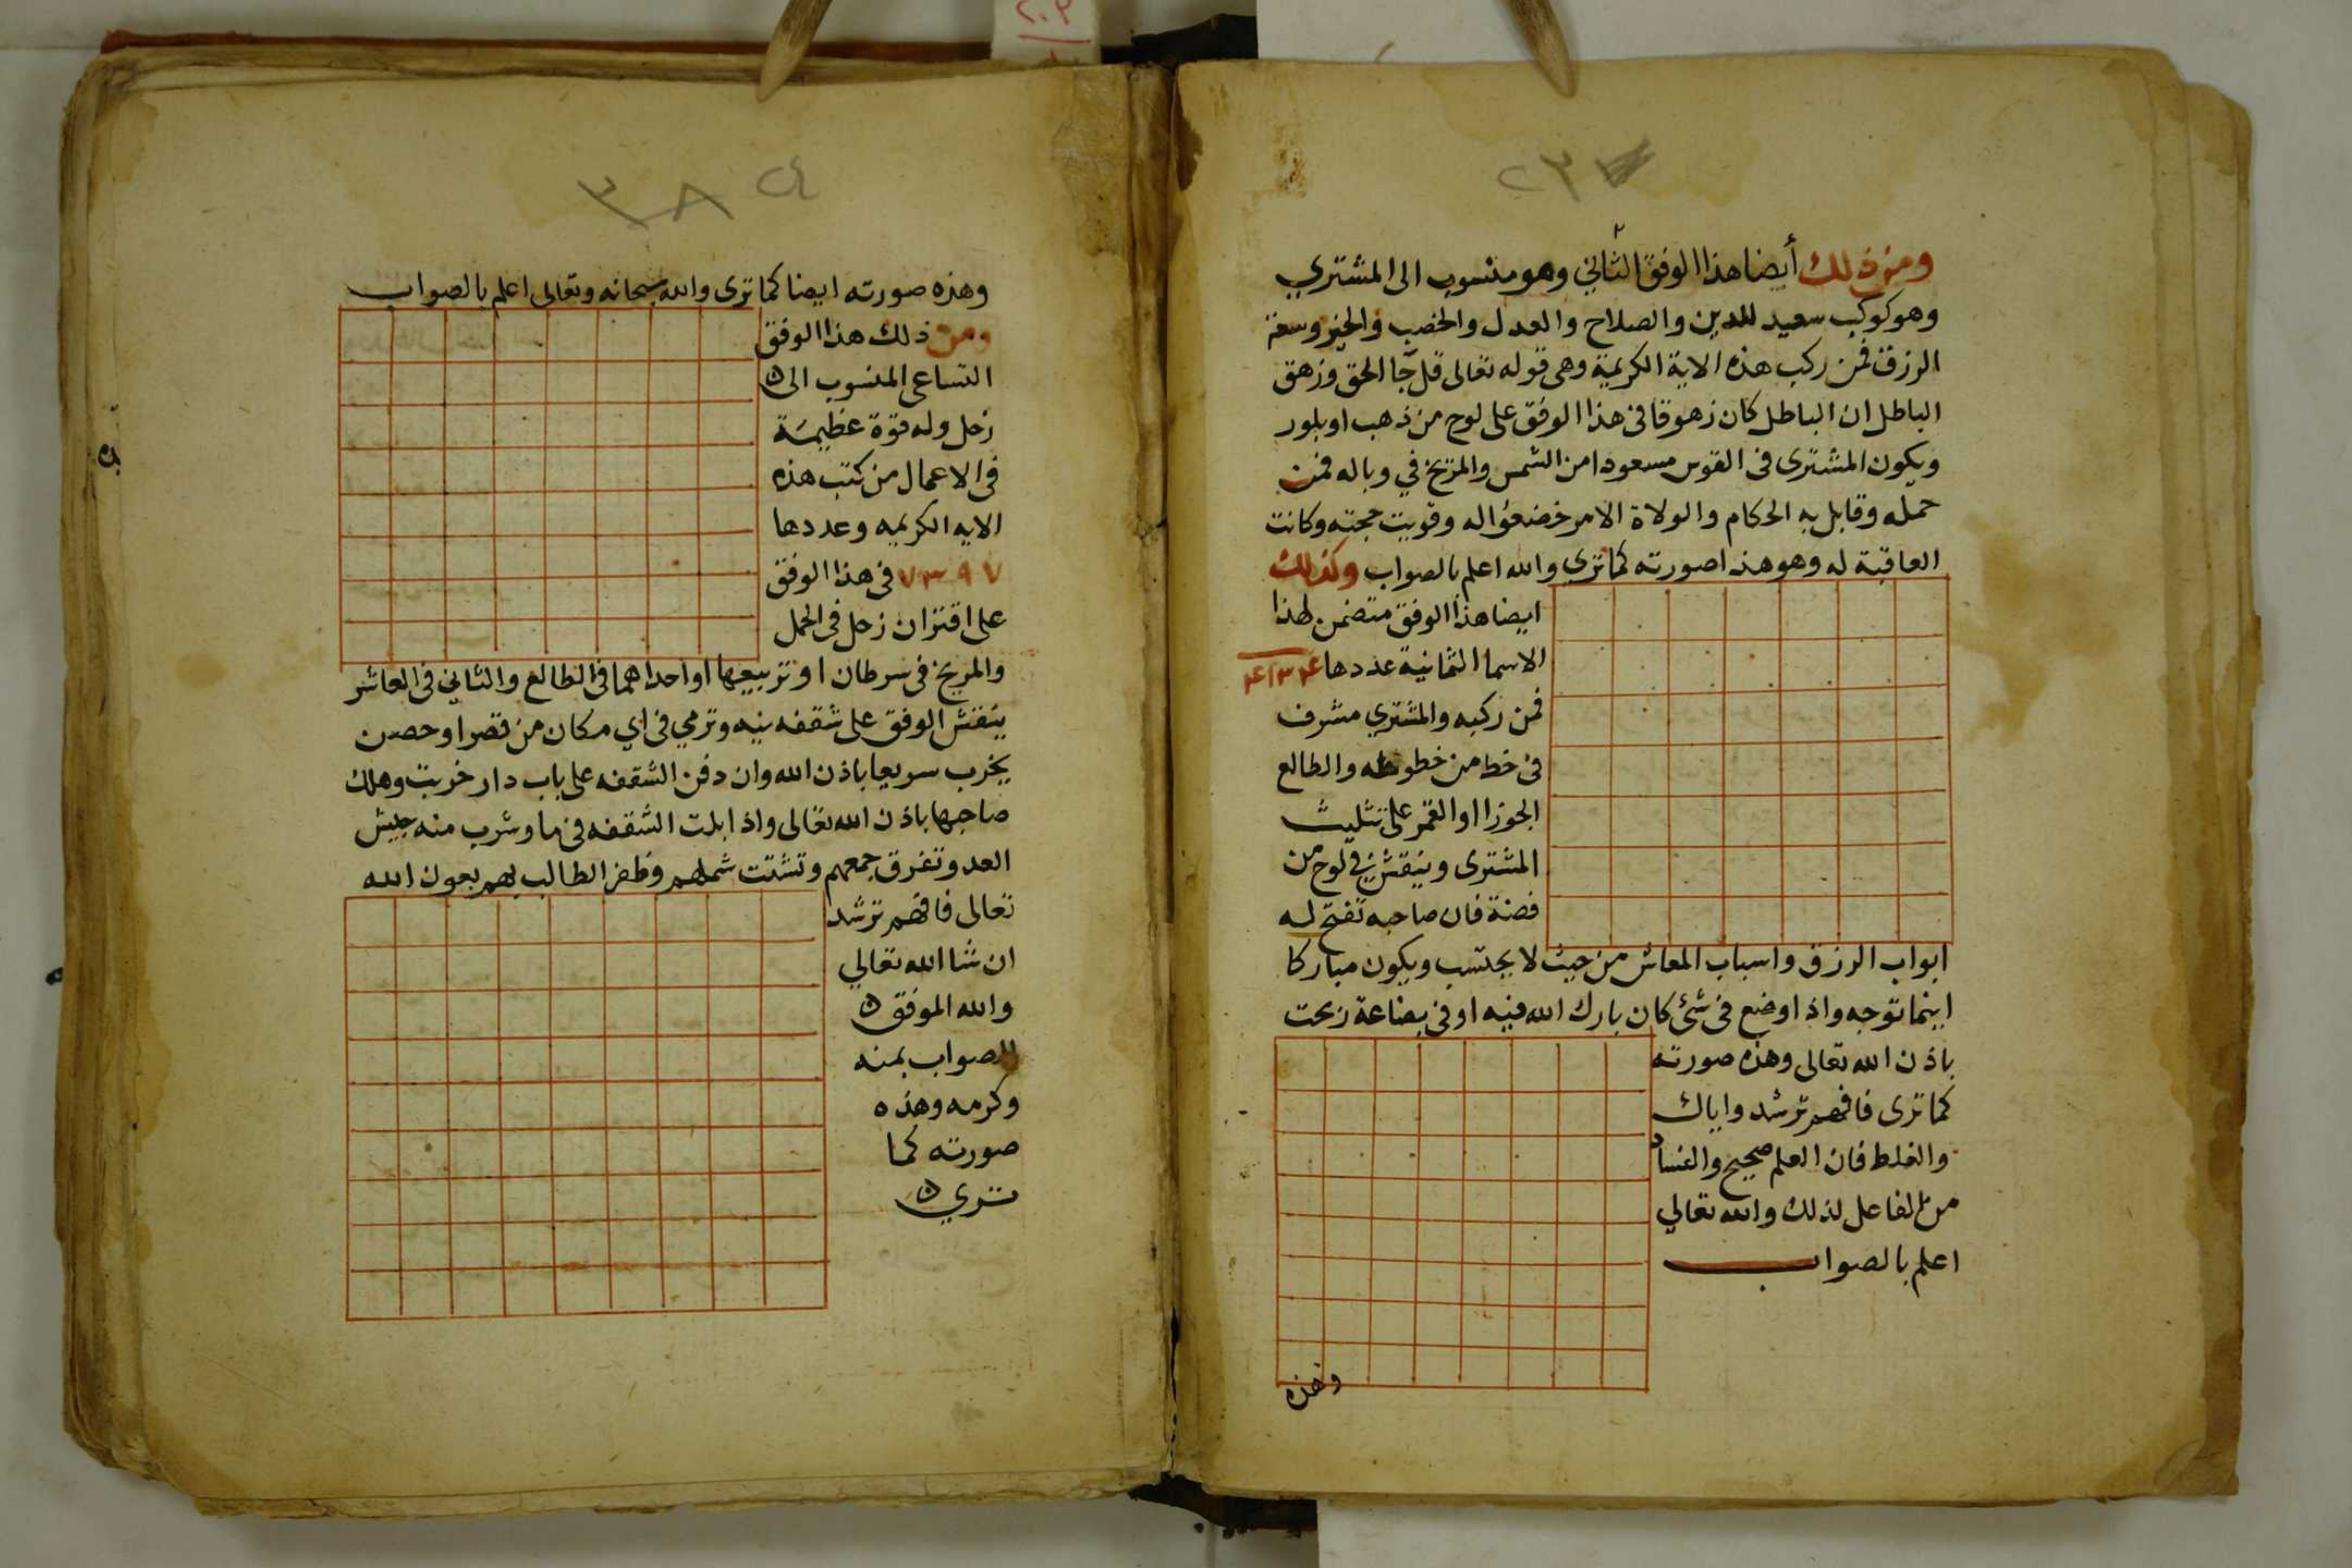 ٢٣
ومن ذلك أيضا هذا الوفق الثاني وهو منسوب الى المشتري
وهو كوكب سعيد للدين والصلاح والعدل والخصب والخير وسعة
الرزق فمن ركب هذه الاية الكريمة وهى قوله تعالى قل جا الحق وزهق
الباطل ان الباطل كان زهوقا فى هذا الوفق على لوح من ذهب او بلور
ويكون المشترى فى القوس مسعودا من الشمس والمريخ في وباله فمن
حمله وقابل به الحكام والولاة الامر خضعوا له وقويت حجته وكانت
العاقبة له وهو هذا صورته كما ترى والله اعلم بالصواب وكذلك
ايضا هذا الوفق متضمن لهذا
الاسما الثمانية عددها
فمن ركبه والمشتري مشرف
فى خط من خطوطه والطالع
الجوزا او القمر على تثليث
المشترى وينقش في لوح من
فضة فان صاحبه تفتح له
ابواب الرزق واسباب المعاش من حيث لا يحتسب ويكون مباركا
اينما توجه واذا وضع فى شئ كان بارك الله فيه او فى بضاعة ربحت
باذن الله تعالى وهذه صورته
كما ترى فافهم ترشد واياك
والغلط فان العلم صحيح والفساد
من الفاعل لذلك والله تعالي
اعلم بالصواب
وهذه
٢٤
٣٨
وهذه صورته ايضا كما ترى والله سبحانه وتعالى اعلم بالصواب
ومن ذلك هذا الوفق
التساعى المنسوب الى
زحل وله قوة عظيمة
فى الاعمال من كتب هذه
الايه الكريمه وعددها
٧٣٩٧ فى هذا الوفق
على اقتران زحل فى الحمل
والمريخ فى سرطان او تربيعها او احداهما فى الطالع والثاني فى العاشر
ينقش الوفق على شقفه نيه وترمي فى اي مكان من قصر او حصن
يخرب سريعا باذن الله وان دفن الشقفه على باب دار خربت وهلك
صاحبها باذن الله تعالى واذا بلت الشقفه فى ما وشرب منه جيش
العدو تفرق جمعهم وتشتت شملهم وظفر الطالب بهم بعون الله
تعالى فافهم ترشد
ان شا الله تعالي
والله الموفق
للصواب بمنه
وكرمه وهذه
صورته كما
تري